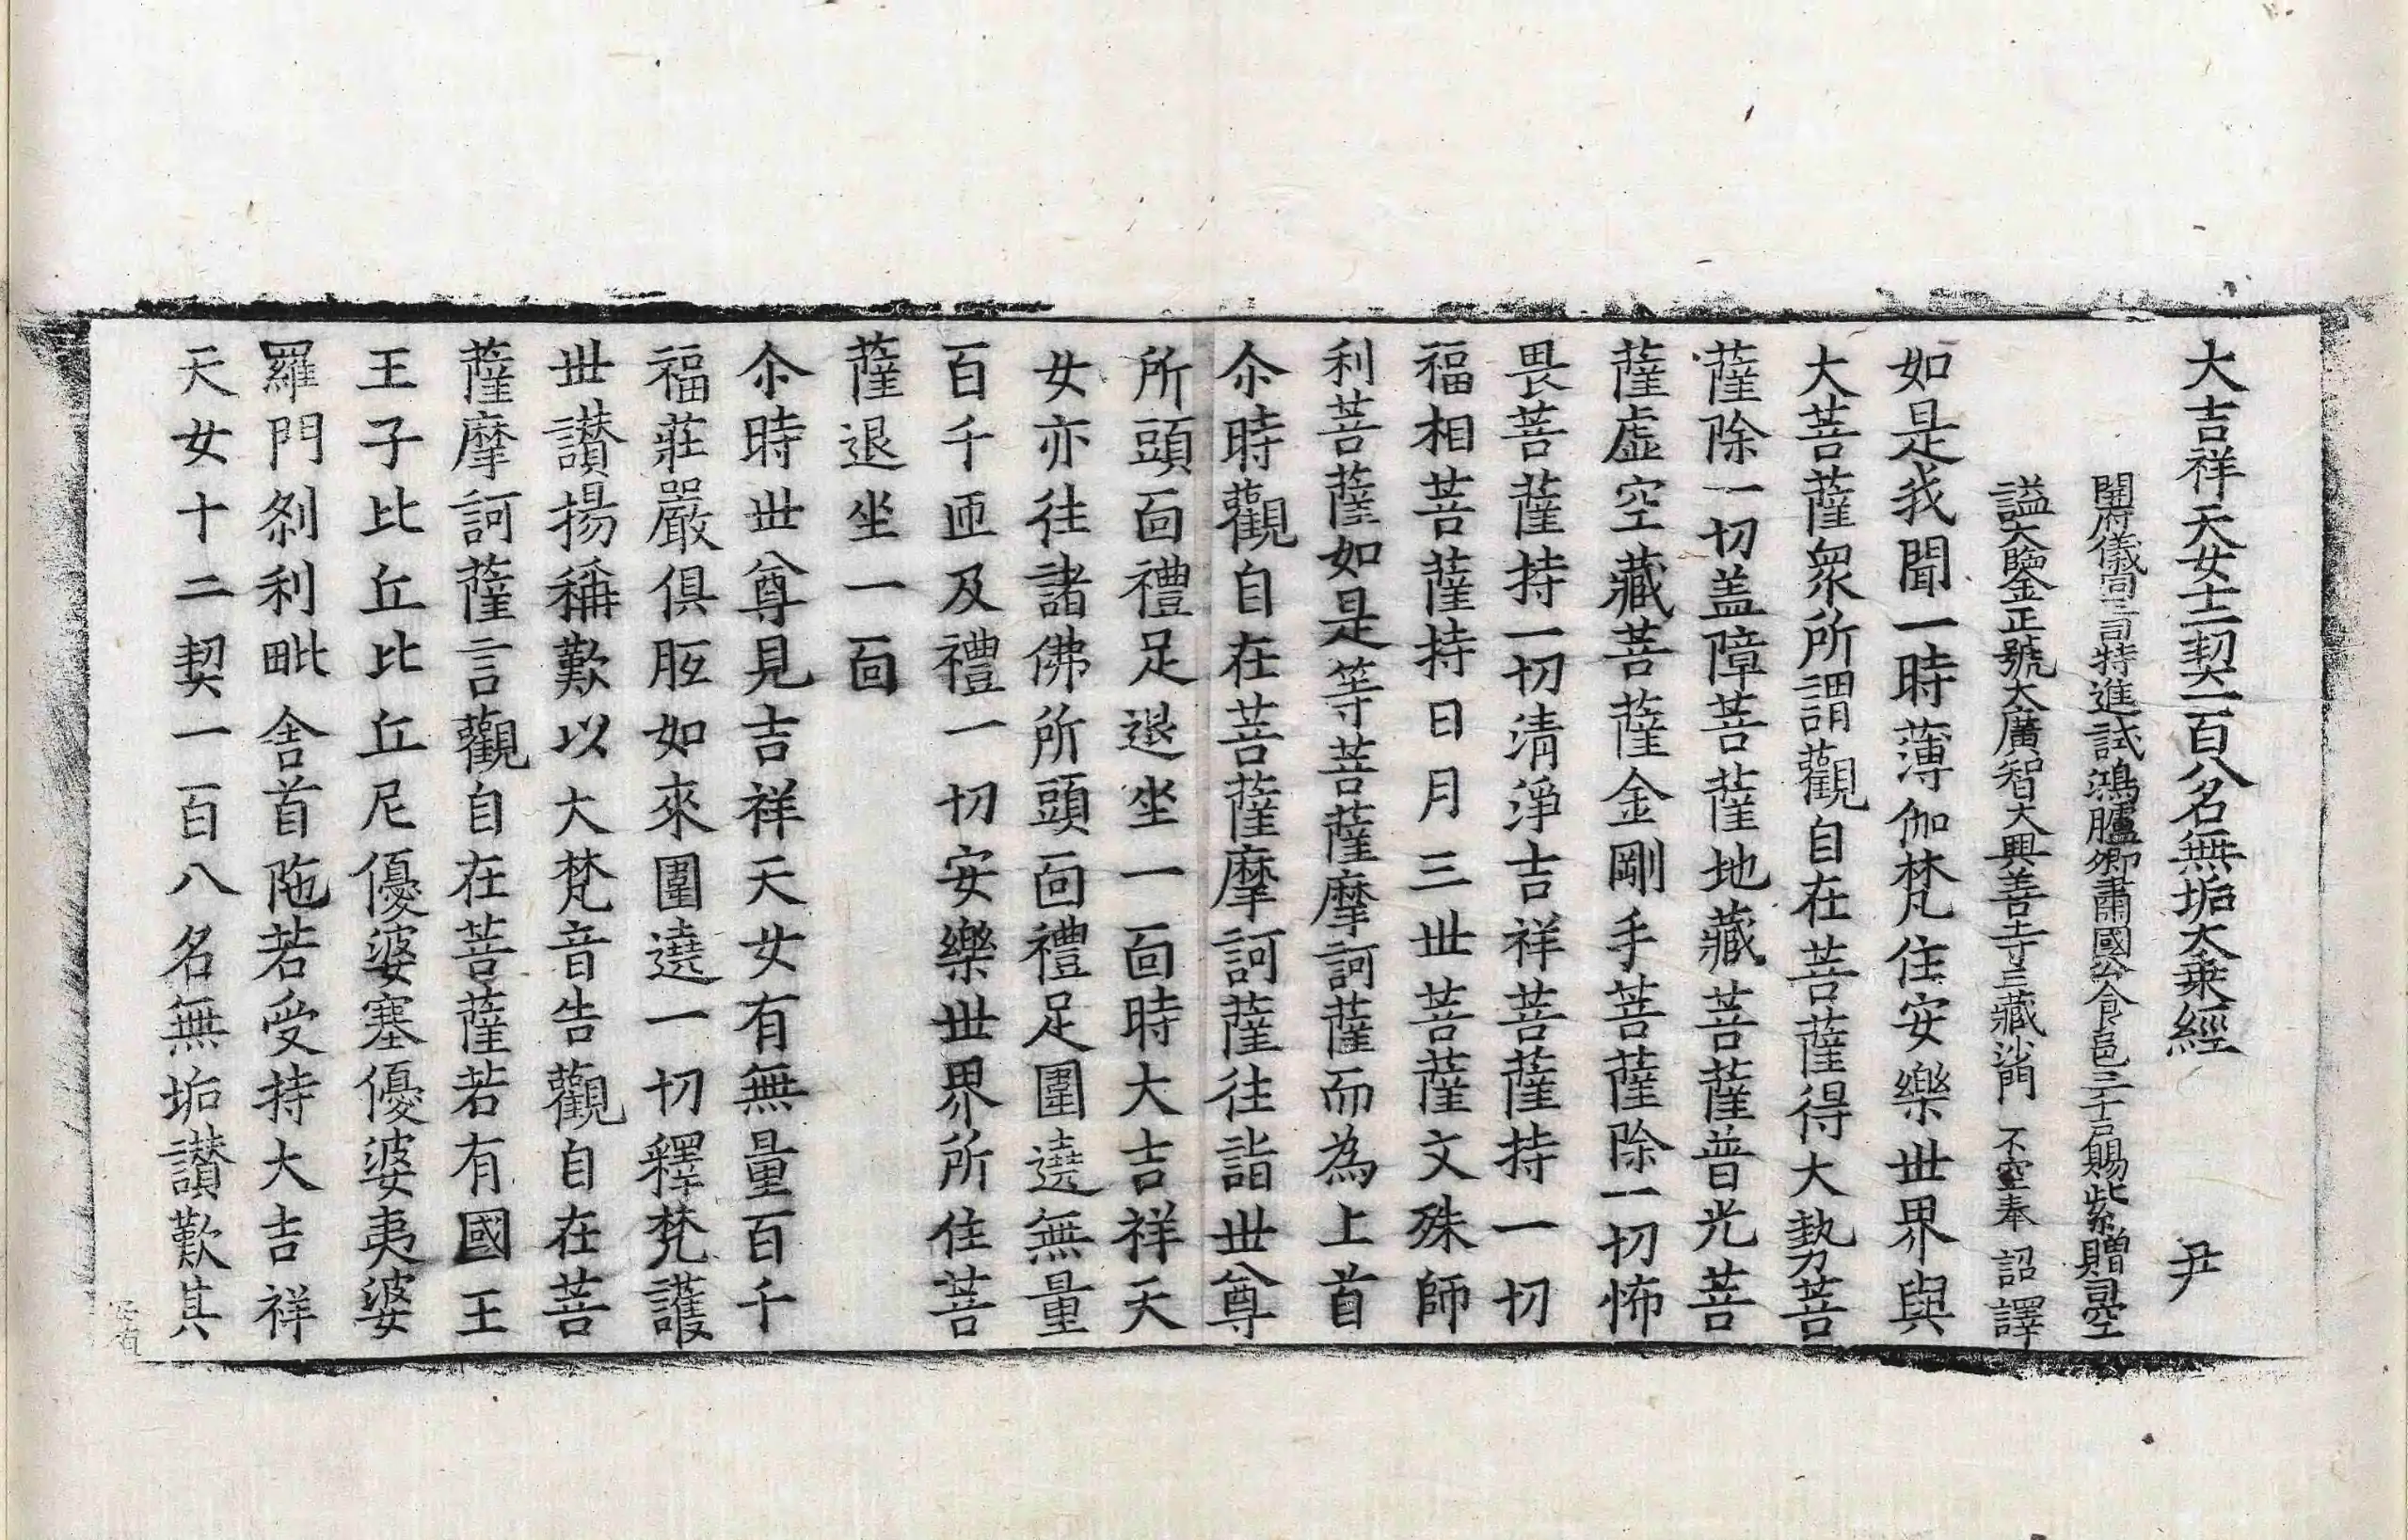 大吉祥天女十二契一百八名無垢大乗經 尹
開府儀同三司特進試鴻臚卿肅國公食邑三千户賜紫贈司空
謚大鑒正號大廣智大興善寺三藏沙門 不空奉 詔譯
如是我聞一時薄伽梵住安樂丗界與
大菩薩衆所謂觀自在菩薩得大勢菩
薩除一切盖障菩薩地藏菩薩普光菩
薩虛空藏菩薩金剛手菩薩除一切怖
畏菩薩持一切清淨吉祥菩薩持一切
福相菩薩持日月三丗菩薩文殊師
利菩薩如是等菩薩摩訶薩而為上首
尒時觀自在菩薩摩訶薩往詣丗尊
所頭面禮足退坐一面時大吉祥天
女亦往諸佛所頭面禮足圍遶無量
百千迊及禮一切安樂丗界所住菩
薩退坐一面
尒時丗尊見吉祥天女有無量百千
福莊嚴俱胝如來圍遶一切釋梵護
丗讃揚稱歎以大梵音告觀自在菩
薩摩訶薩言觀自在菩薩若有國王
王子比丘比丘尼優婆塞優婆夷婆
羅門刹利毗舍首陁若受持大吉祥
天女十二契一百八名無垢讃歎其